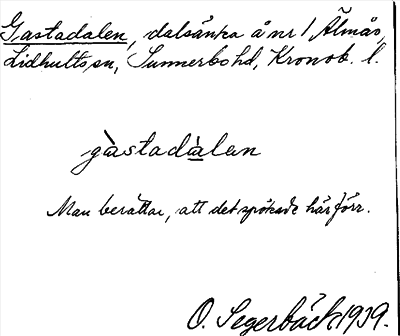 Gastadalen, dalsänka å nr 1 Älmås,
Lidhults sn, Sunnerbo hd, Kronob. l.
gàstadàlan
Man berättar, att det spökade här förr.
O. Segerbäck 1939.